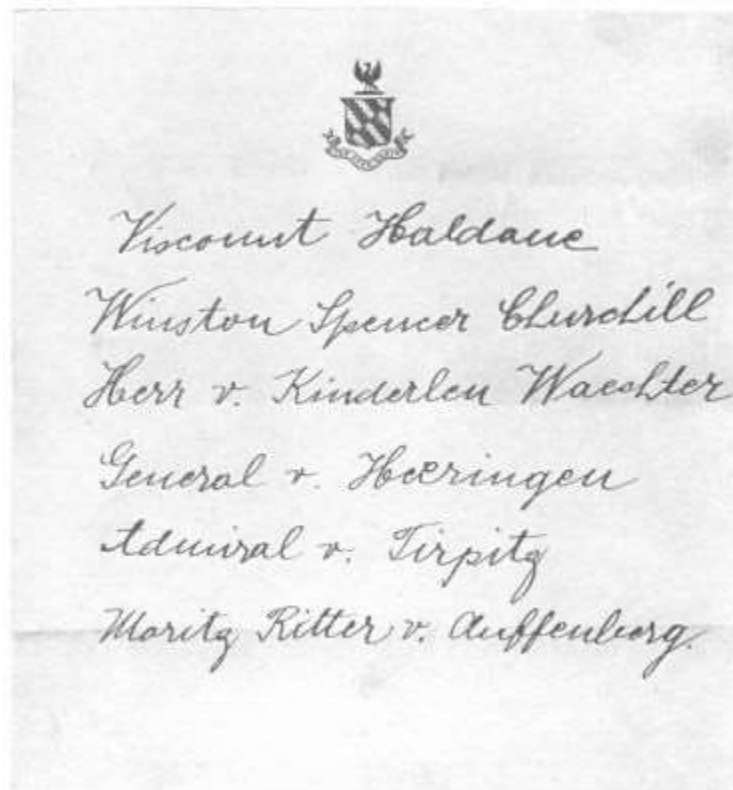 Viscount Haldane
Winston Spencer Churchill
Herr v. Kinderlen Waechter
General v. Heeringen
Admiral v. Tirpitz
Moritz Ritter v. Auffenberg.